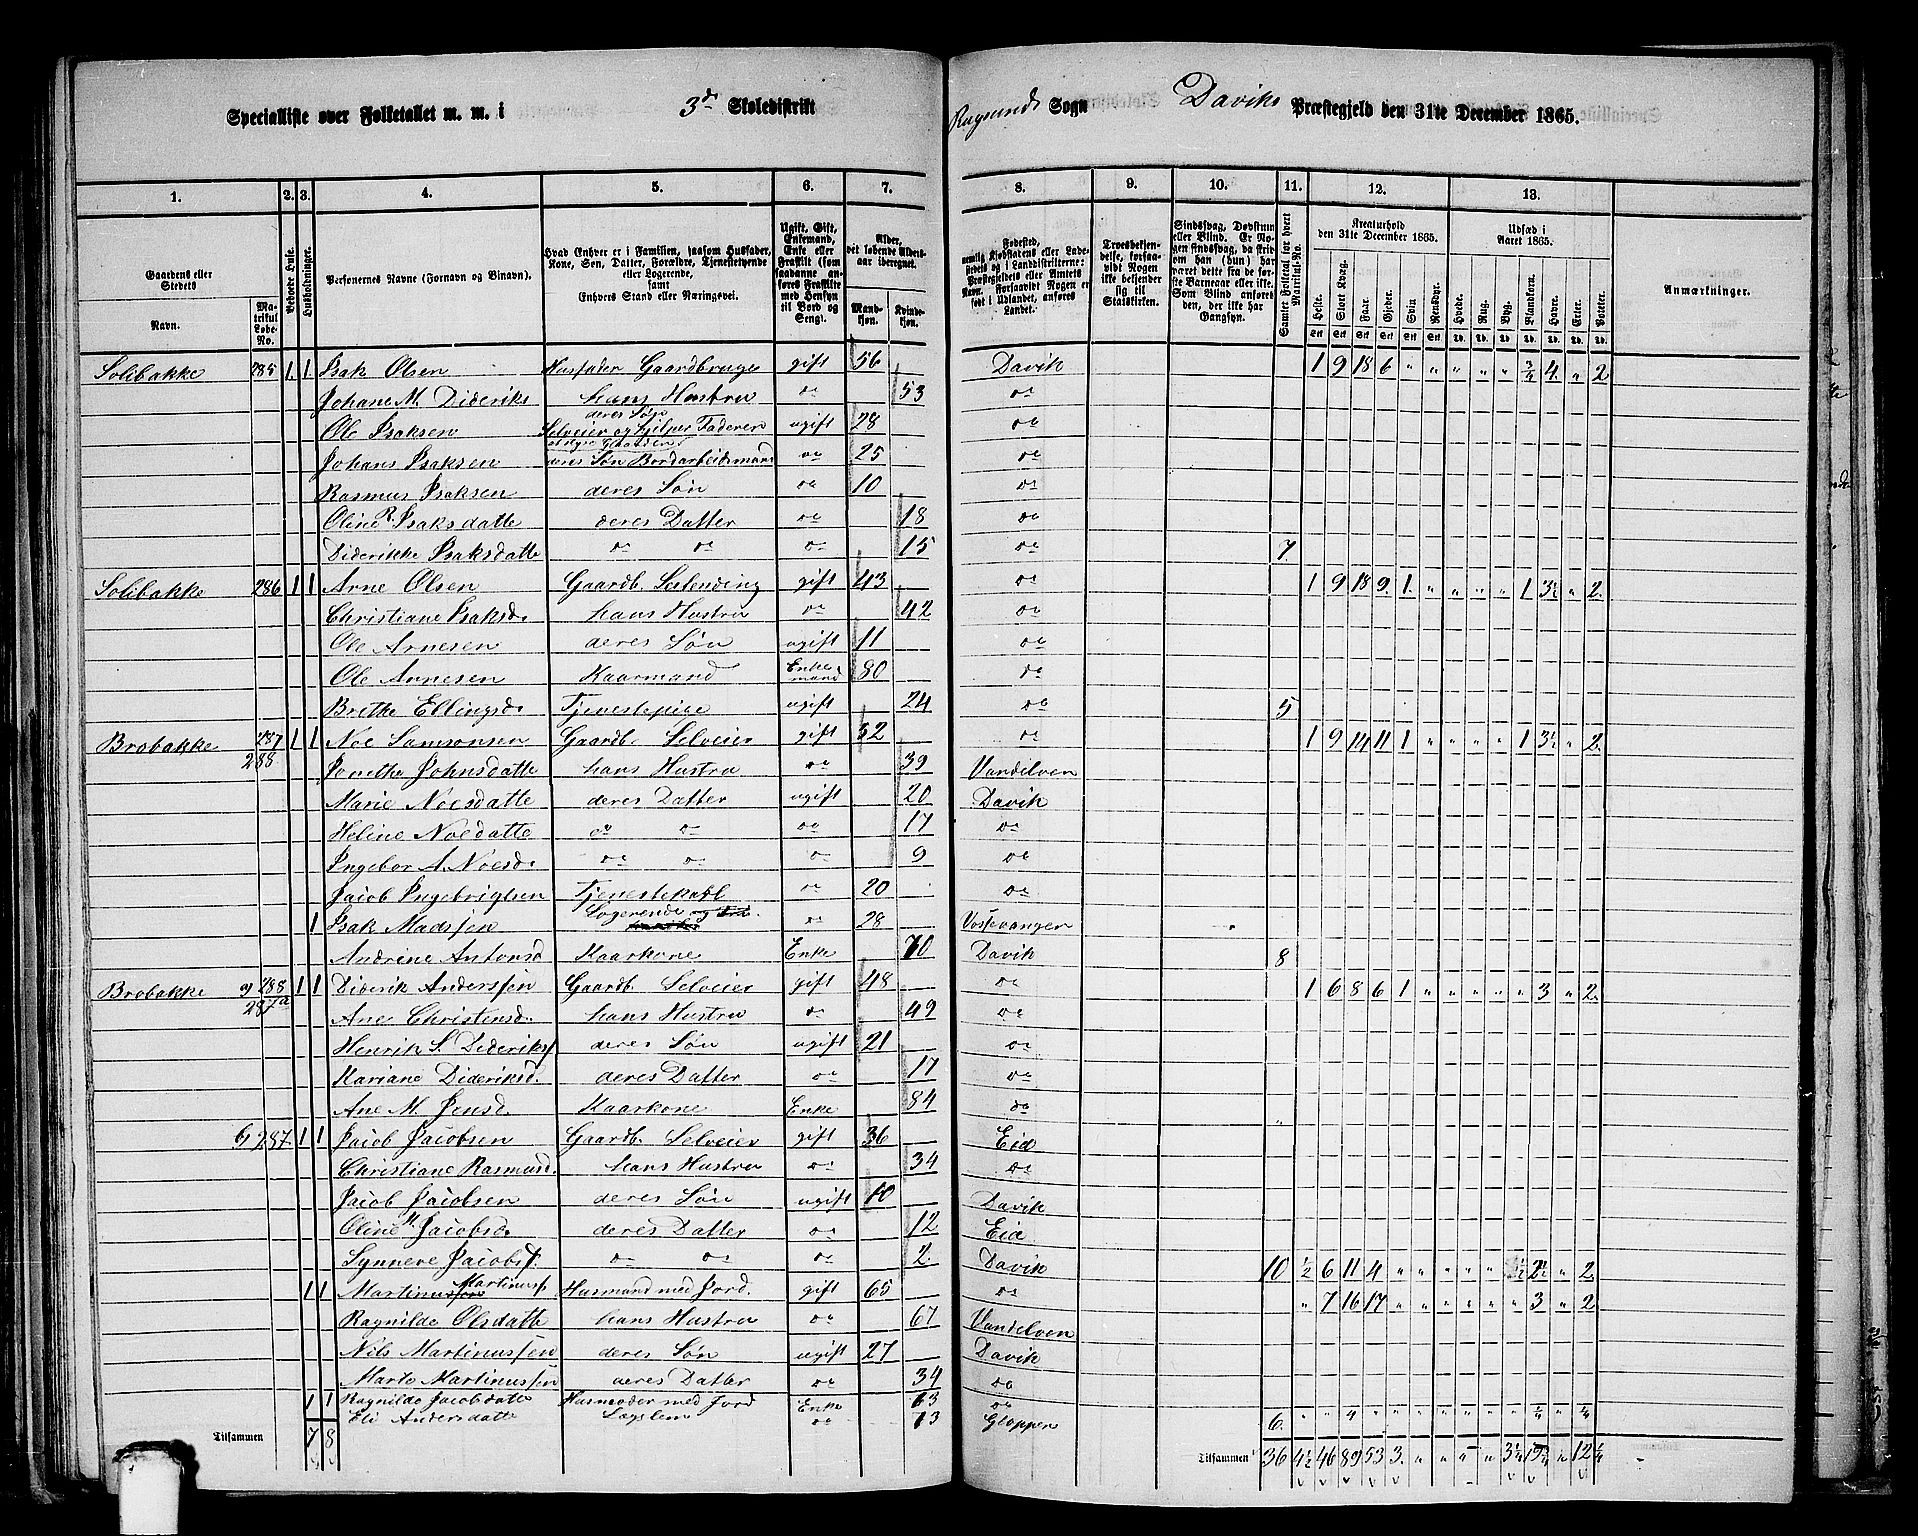 Specialliste over Folketallet m. m. i 3de Skoledistrikt Rugsunds Sogn Daviks Præstegjeld den 31te December 1865.
1. 2. 3. 4. 5. 6. 7. 8. 9. 10. 11. 12. 13.
Gaardens eller Stedets Navn. Matrikul Løbe-No. Beboede Huse. Husholdninger. Personernes Navne (Fornavn og Binavn). Hvad Enhver er i Familien, saasom Husfader, Kone, Søn, Datter, Forældre, Tjenestetyende eller Logerende, samt Enhvers Stand eller Næringsvei. Ugift, Gift, Enkemand, Enke eller Fraskilt (som saadanne anføres Fraskilte med Hensyn til Bord og Seng). Alder, det løbende Aldersaar iberegnet. Mandkjøn. Kvindekjøn.
Anmærkninger.
Kreaturhold den 31te December 1865. Udsæd i Aaret 1865.
Heste. Stort Kvæg. Faar. Gjeder. Svin Rensdyr. Hvede. Rug. Byg. Blandkorn. Havre. Erter. Poteter.
Solibakke 285 1. 1 Isak Olsen Husfader Gaardbruger gift 56 Davik 1 9 18 6 " " " " " 3/4 4. " 2
Johane M. Dideriks hans Hustru do 53 do
Ole Isaksen deres Søn Selveier og hjelper Faderen ugift 28 do
Johans Isaksen deres Søn Bordarbeidsmand do 25 do
Rasmus Isaksen deres Søn do 10 do
Oline R. Isaksdatte deres Datter do 18 do
Diderikke Isaksdatte do do do 15 do 7.
Solibakke 286 1 1 Arne Olsen Gaardb. Seilending gift 43 do 1 9 18 9. 1. " " " " 1 3½ " 2.
Christiane Isaksd. hans Hustru do 42 do
Ole Arnesen deres Søn ugift 11 do
Ole Arnesen Kaarmand Enkemand 80 do
Brithe Ellingsd. Tjenestepige ugift 24 do 5
Brobakke 287 288 1 1 Noe Samsonsen Gaardb. Selveier gift 52 do 1 9 14 11 1 " " " " 1 3½ " 2.
Jonethe Johnsdatte hans Hustru do 39 Vandelven
Marie Noesdatte deres Datter ugift 20 Davik
Heline Noedatte do do do 17 do
Ingebor A. Noesd. do do do 9 do
Jacob Ingebrigtsen Tjenestekarl do 20 do
1 Isak Madssen Logerende do 28 Vossevangen
Andrine Antonsd Kaarkone Enke 70 Davik 8
Brobakke a) 288 287a 1 1 Diderik Anderssen Gaardb. Selveier gift 48 do 1 6 8 6 1 " " " " " 3 " 2.
Ane Christensd. hans Hustru do 49 do
Henrik S. Dideriks deres Søn ugift 21 do
Mariane Dideriksd. deres Datter do 17 do
Ane M. Jensd. Kaarkone Enke 84 do
b) 287. 1 1 Jacob Jacobsen Gaardb. Selveier gift 36 Eid
Christiane Rasmusd. hans Hustru do 34 do
Jacob Jacobsen deres Søn ugift 10 Davik
Oline M. Jacobsd. deres Datter do 12 Eid
Synneve Jacobsd. do do do 2. Davik 10 ½ 6 11 4 " " " " " 1½ 2½ " 2.
1 1 Martinus Martinuss Husmand med Jord. gift 65 do " 7 16 17 " " " " " " 3 " 2
Ragnilde Olsdatte hans Hustru do 67 Vandelven
Nils Martinussen deres Søn ugift 27 Davik
Marte Martinussen deres Datter do 34 do
1 1 Ragnilde Jacobsdatte Husmoder med Jord Enke 63 do
Eli Andersdatte Lægslem do 73 Gloppen 6. " " 4 " " " " " " " ¼ " ¼
Tilsammen 7 8 Tilsammen 36 4½ 46 89 53 3. " " " " 3¼ 19¾ " 12¼